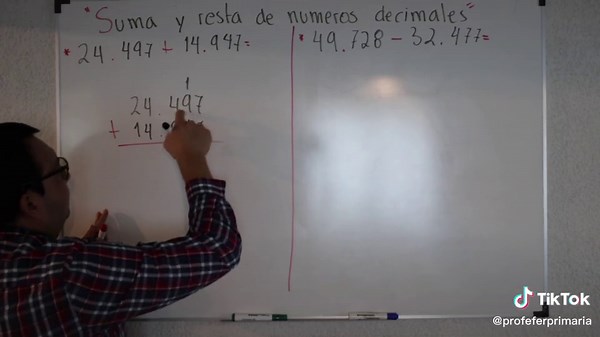 "Suma y resta de numeros decimales"
* 24.497 + 14.947=
* 49.728 - 32.477=
1
24.497
+ 14.
TikTok
@profeferprimaria